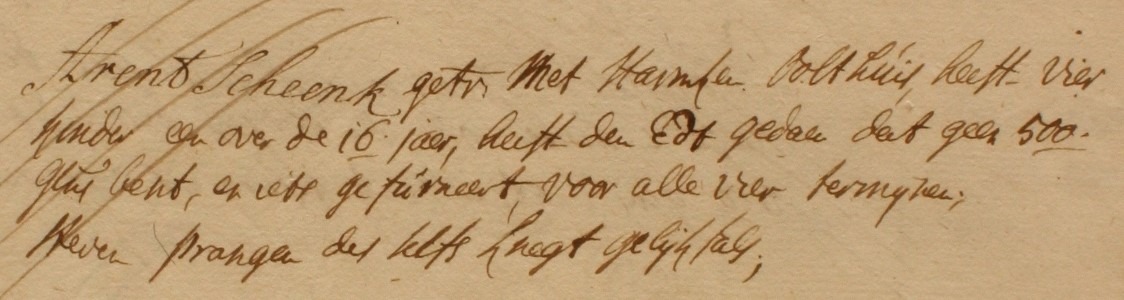 Arent Scheenk getr. Met Harmken Oolthuis, heeft vier
kinder een over de 16 jaer, heeft den Edt gedaen dat geen 500
glns bent, en iets gefurneert, voor alle vier termynen;
Steven prangen des selfs knegt gelijkfals;